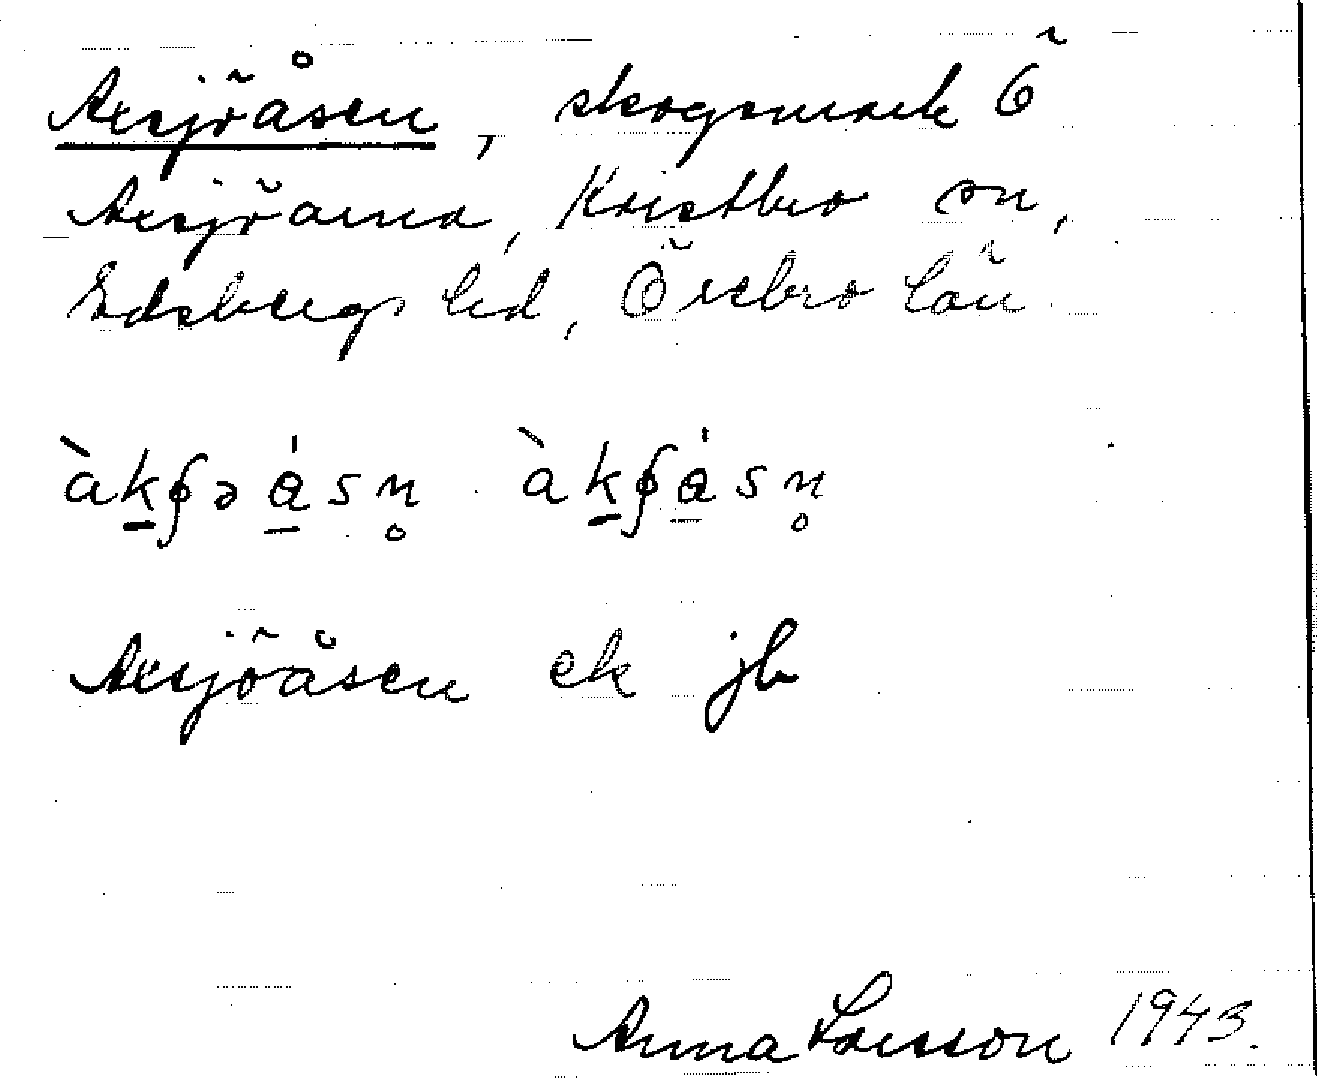 Axsjöåsen, skogsmark Ö
Axsjöarna, Kvistbro sn,
Edsbergs hd, Örebro län
àkʂəåsn̥ àkʂåsn̥
Axsjöåsen ek jb
Anna Larsson 1943.